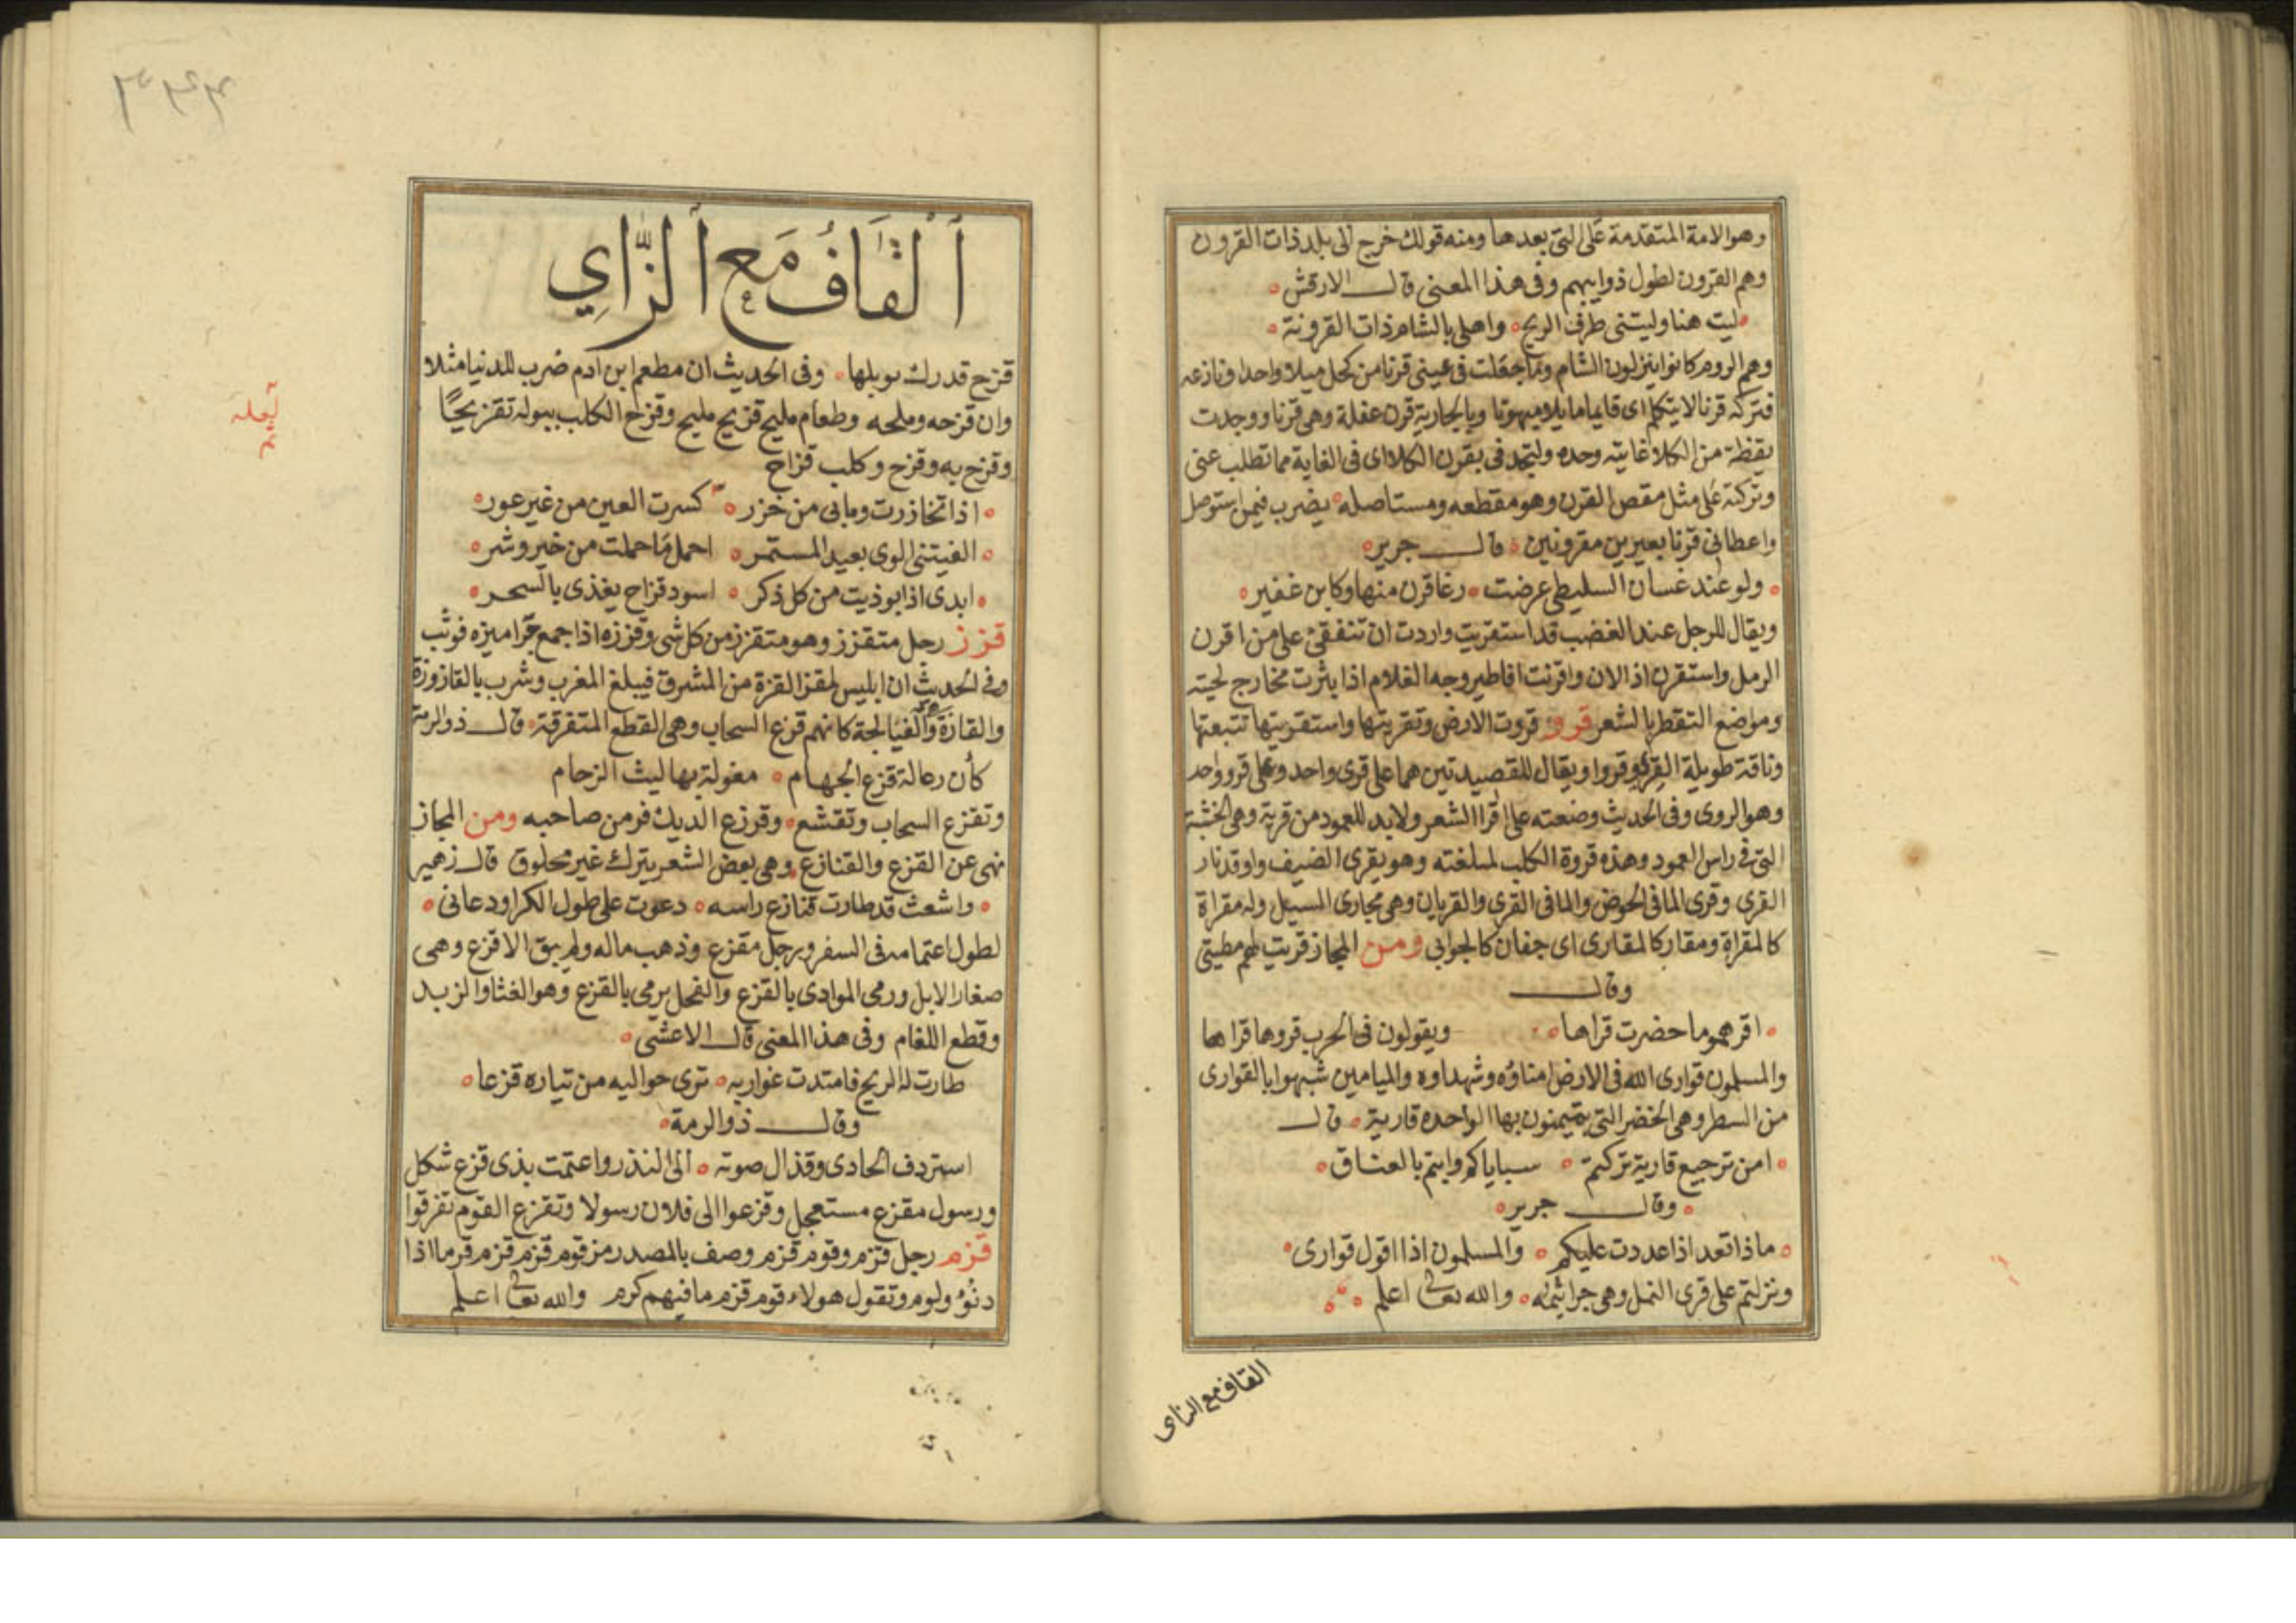 وهوالامة المتقدمة على التى بعدها ومنه قولك خرج الى بلد ذات القرون
وهم القرون لطول ذوايبهم وفى هذا المعنى قال الارقش
ليت هنا وليتنى طرف الريح واهلى بالشام ذات القرونة
وهم الروم كانوا ينزلون الشام وما جعلت فى عينى قرنا من كحل ميلا واحدا ونازعه
فتركه قرنا لا يتكلم اى قايما مايلا مبهوتا وبالجارية قرن عفلة وهى قرنا ووجدت
يقظة من الكلا غايته وحده ولتجد فى بقرن الكلا اى فى الغاية مما تطلب عنى
وتركته على مثل مقص القرن وهو مقطعه ومستاصله يضرب فيمن استوصل
واعطانى قرنا بعيرين مقرونين قال جرير
ولو عند غسان السليطى عرضت رغا قرن منها وكابن غفير
ويقال للرجل عند الغضب قد استقريت واردت ان تنفقئ على من اقرن
الرمل واستقرن اذا لان واقرنت افاطير وجه الغلام اذا بثرت مخارج لحيته
ومواضع التقطر بالشعر قرو قروت الارض وتقريتها واستقريتها تتبعتها
وناقة طويلة القرى وقروا ويقال للقصيدتين هما على قرى واحد وعلى قرو واحد
وهو الروى وفى الحديث وضعته على اقرا الشعر ولا بد للعمود من قرية وهى الخشبة
التى فى راس العمود وهذه قروة الكلب لمبلغته وهو يقرى الضيف واوقد نار
القرى وقرى الما فى الحوض والما فى القرى والقريان وهى مجارى السيل وله مقراة
كالمقراة ومقار كالمقارى اى جفان كالجوابى ومن المجاز قريت لهم مطيتى
وقال
اقرهموما حضرت قراها ويقولون فى الحرب قروها قراها
والمسلمون قوارى الله فى الارض امناؤه وشهداوه والميامين شبهوا بالقوارى
من السطر وهى الخضر التى يتيمنون بها الواحده قارية قال
امن ترجيع قارية تركتم سباياكم وابتم بالعناق
وقال جرير
ماذا تعد اذا عددت عليكم والمسلمون اذا اقول قوارى
ونزلتم على قرى النمل وهى جراثيمه والله تعالى اعلم
القاف مع الزاى
٣٤٣
اَلْقَافُ مَعَ اَلزَّايِ
قزح قدرك توبلها وفى الحديث ان مطعم ابن ادم ضرب للدنيا مثلا
وان قزحه وملحه وطعام مليح قزيح مليح وقزح الكلب ببوله تقزيحًا
وقزح به وقزح وكلب قزاح
اذا تخازرت ومابى من خزر كسرت العين من غير عور
الفيتنى الوى بعيد المستمر احمل ما حملت من خير وشر
ابدى اذا بوذيت من كل ذكر اسود قزاح يغذى بالسحر
قزز رجل متقزز وهو متقزز من كل شى وقززه اذا جمع جراميزه فوثب
وفى الحديث ان ابليس لمقز القزة من المشرق فيبلغ المغرب وشرب بالقازوزة
والقازة والفيالجة كانهم قزع السحاب وهى القطع المتفرقة قال ذو الرمة
كأن رعالة قزع الجهام مغولة بها ليث الزحام
وتقزع السحاب وتقشع وقزع الديك فر من صاحبه ومن المجاز
نهى عن القزع والقنازع وهى بعض الشعر يترك غير محلوق قال زهير
واشعث قد طارت قنازع راسه دعوت على طول الكرا ودعانى
لطول اعتمامه فى السفر ورجل مقزع وذهب ماله ولم يبق الا قزع وهى
صغار الابل ورمى الوادى بالقزع والفحل يرمى بالقزع وهو الغثا والزبد
وقطع اللغام وفى هذا المعنى قال الاعشى
طارت له الريح فامتدت غواربه ترى حواليه من تياره قزعا
وقال ذوالرمة
استردف الحادى وقذال صوته الى النذر واعتمت بذى قزع شكل
ورسول مقزع مستعجل وقزعوا الى فلان رسولا وتقزع القوم تفرقوا
قزم رجل قزم وقوم قزم وصف بالمصدر من قوم قزم قزم قزما اذا
دنو ولوم وتقول هولاء قوم قزم ما فيهم كرم والله تعالى اعلم